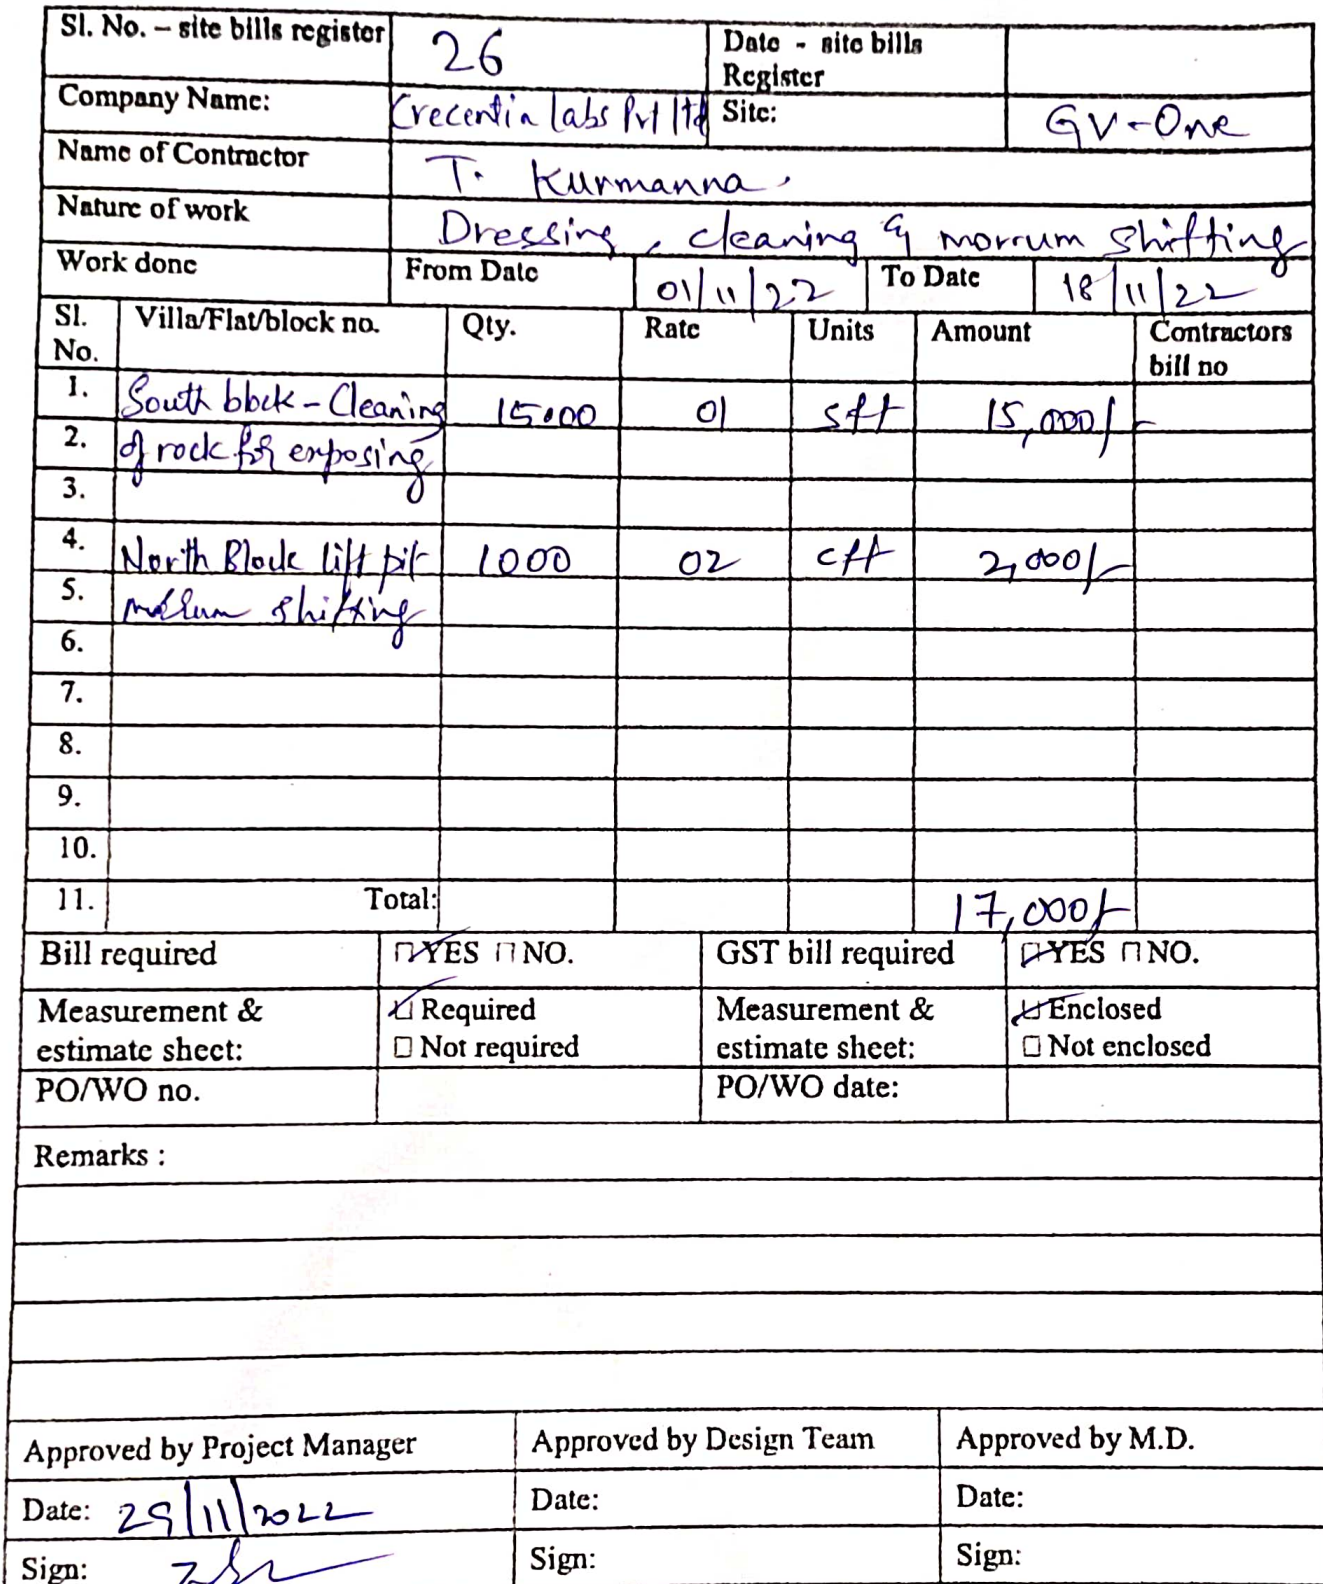 Sl. No. – site bills register 26 Date - site bills Register
Company Name: Crecentia labs Pvt ltd Site: GV-One
Name of Contractor T. Kurmanna.
Nature of work Dressing, cleaning & morrum shifting
Work done From Date 01/11/22 To Date 18/11/22
Sl. No. Villa/Flat/block no. Qty. Rate Units Amount Contractors bill no
1. South block - Cleaning 15000 01 sft 15,000/-
2. of rock for exposing
3.
4. North Block lift pit 1000 02 cft 2,000/-
5. morrum shifting
6.
7.
8.
9.
10.
11. Total: 17,000/-
Bill required YES NO. GST bill required YES NO.
Measurement & estimate sheet: Required Not required Measurement & estimate sheet: Enclosed Not enclosed
PO/WO no. PO/WO date:
Remarks :
Approved by Project Manager Approved by Design Team Approved by M.D.
Date: 29/11/2022 Date: Date:
Sign: Sign: Sign: